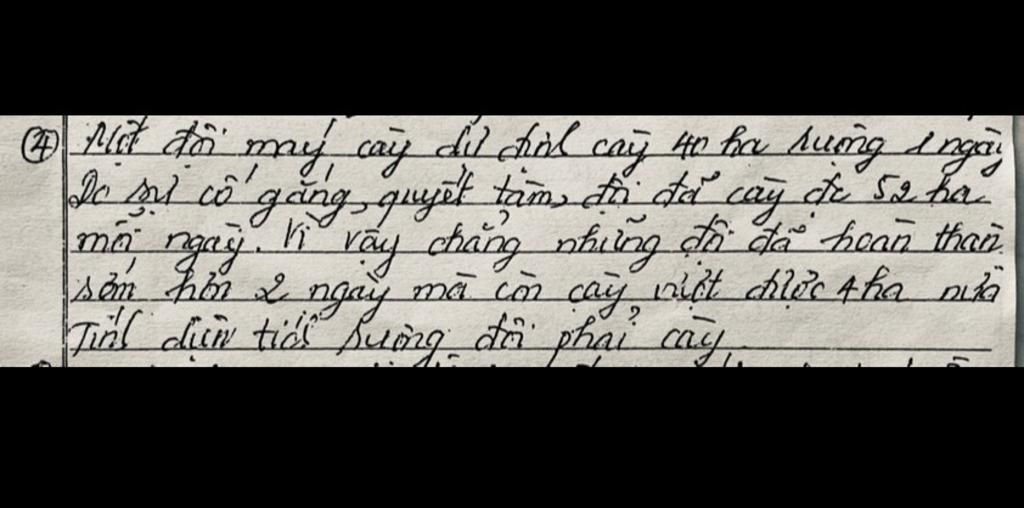 ④ Một đội máy cày dự định cày 40 ha ruộng 1 ngày
Do sự cố gắng, quyết tâm, đội đã cày đc 52 ha
mỗi ngày. Vì vậy chẳng những đội đã hoàn thàn
sớm hơn 2 ngày mà còn cày vượt được 4 ha nữa
Tính diện tích ruộng đội phải cày.